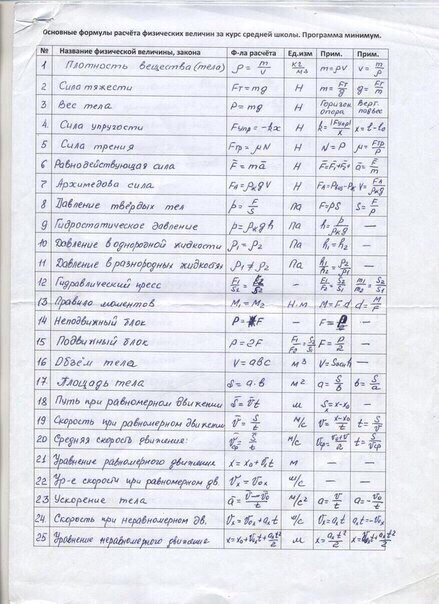 Основные формулы расчёта физических величин за курс средней школы. Программа минимум.
№ Название физической величины, закона Ф-ла расчёта Ед.изм Прим. Прим.
1 Плотность вещества (тела) ρ = m/v кг/м³ m = ρV v = m/ρ
2 Сила тяжести Fт = mg Н m = Fт/g g = Fт/m
3 Вес тела P = mg Н Горизон. опора Верт. подвес
4. Сила упругости Fупр = -kx Н k = |Fупр|/x x = l - l₀
5 Сила трения Fтр = μN Н N = P μ = Fтр/P
6 Равнодействующая сила F̄ = mā Н F̄ = F̄₁ + F̄₂ ā = F̄/m
7 Архимедова сила FA = ρж g V Н V = FA/ρжg
8 Давление твёрдых тел p = F/S Па F = pS S = F/p
9 Гидростатическое давление p = ρж g h Па h = p/ρжg —
10 Давление в однородной жидкости ρ₁ = ρ₂ Па h₁ = h₂ —
11 Давление в разнородных жидкостях ρ₁ ≠ ρ₂ Па h₁/h₂ = ρ₂/ρ₁ —
12 Гидравлический пресс F₁/S₁ = F₂/S₂ —
13 Правило моментов M₁ = M₂ Н·м M = Fd d = M/F
14 Неподвижный блок P = F — —
15 Подвижный блок P = 2F F = P/2 —
16 Объём тела V = abc м³ V = Sосн h —
17 Площадь тела S = a·b м² a = S/b b = S/a
18 Путь при равномерном движении S̄ = v̄t м Sₓ = x - x₀ —
19 Скорость при равномерном движении v̄ = S̄/t м/с v = x-x₀/t t = S/v
20 Средняя скорость движения: м/с t = S/vср
21 Уравнение равномерного движения x = x₀ + vₓt м — —
22 Ур-е скорости при равномерном дв. м/с — —
23 Ускорение тела ā = v̄-v̄₀/t м/с² a = v/t a = -v₀/t
24. Скорость при неравномерном дв. vₓ = v₀ₓ + aₓt м/с vₓ = aₓt aₓt = -v₀
25 Уравнение неравномерного движения x = x₀ + v₀ₓt + aₓt²/2 м x = aₓt²/2